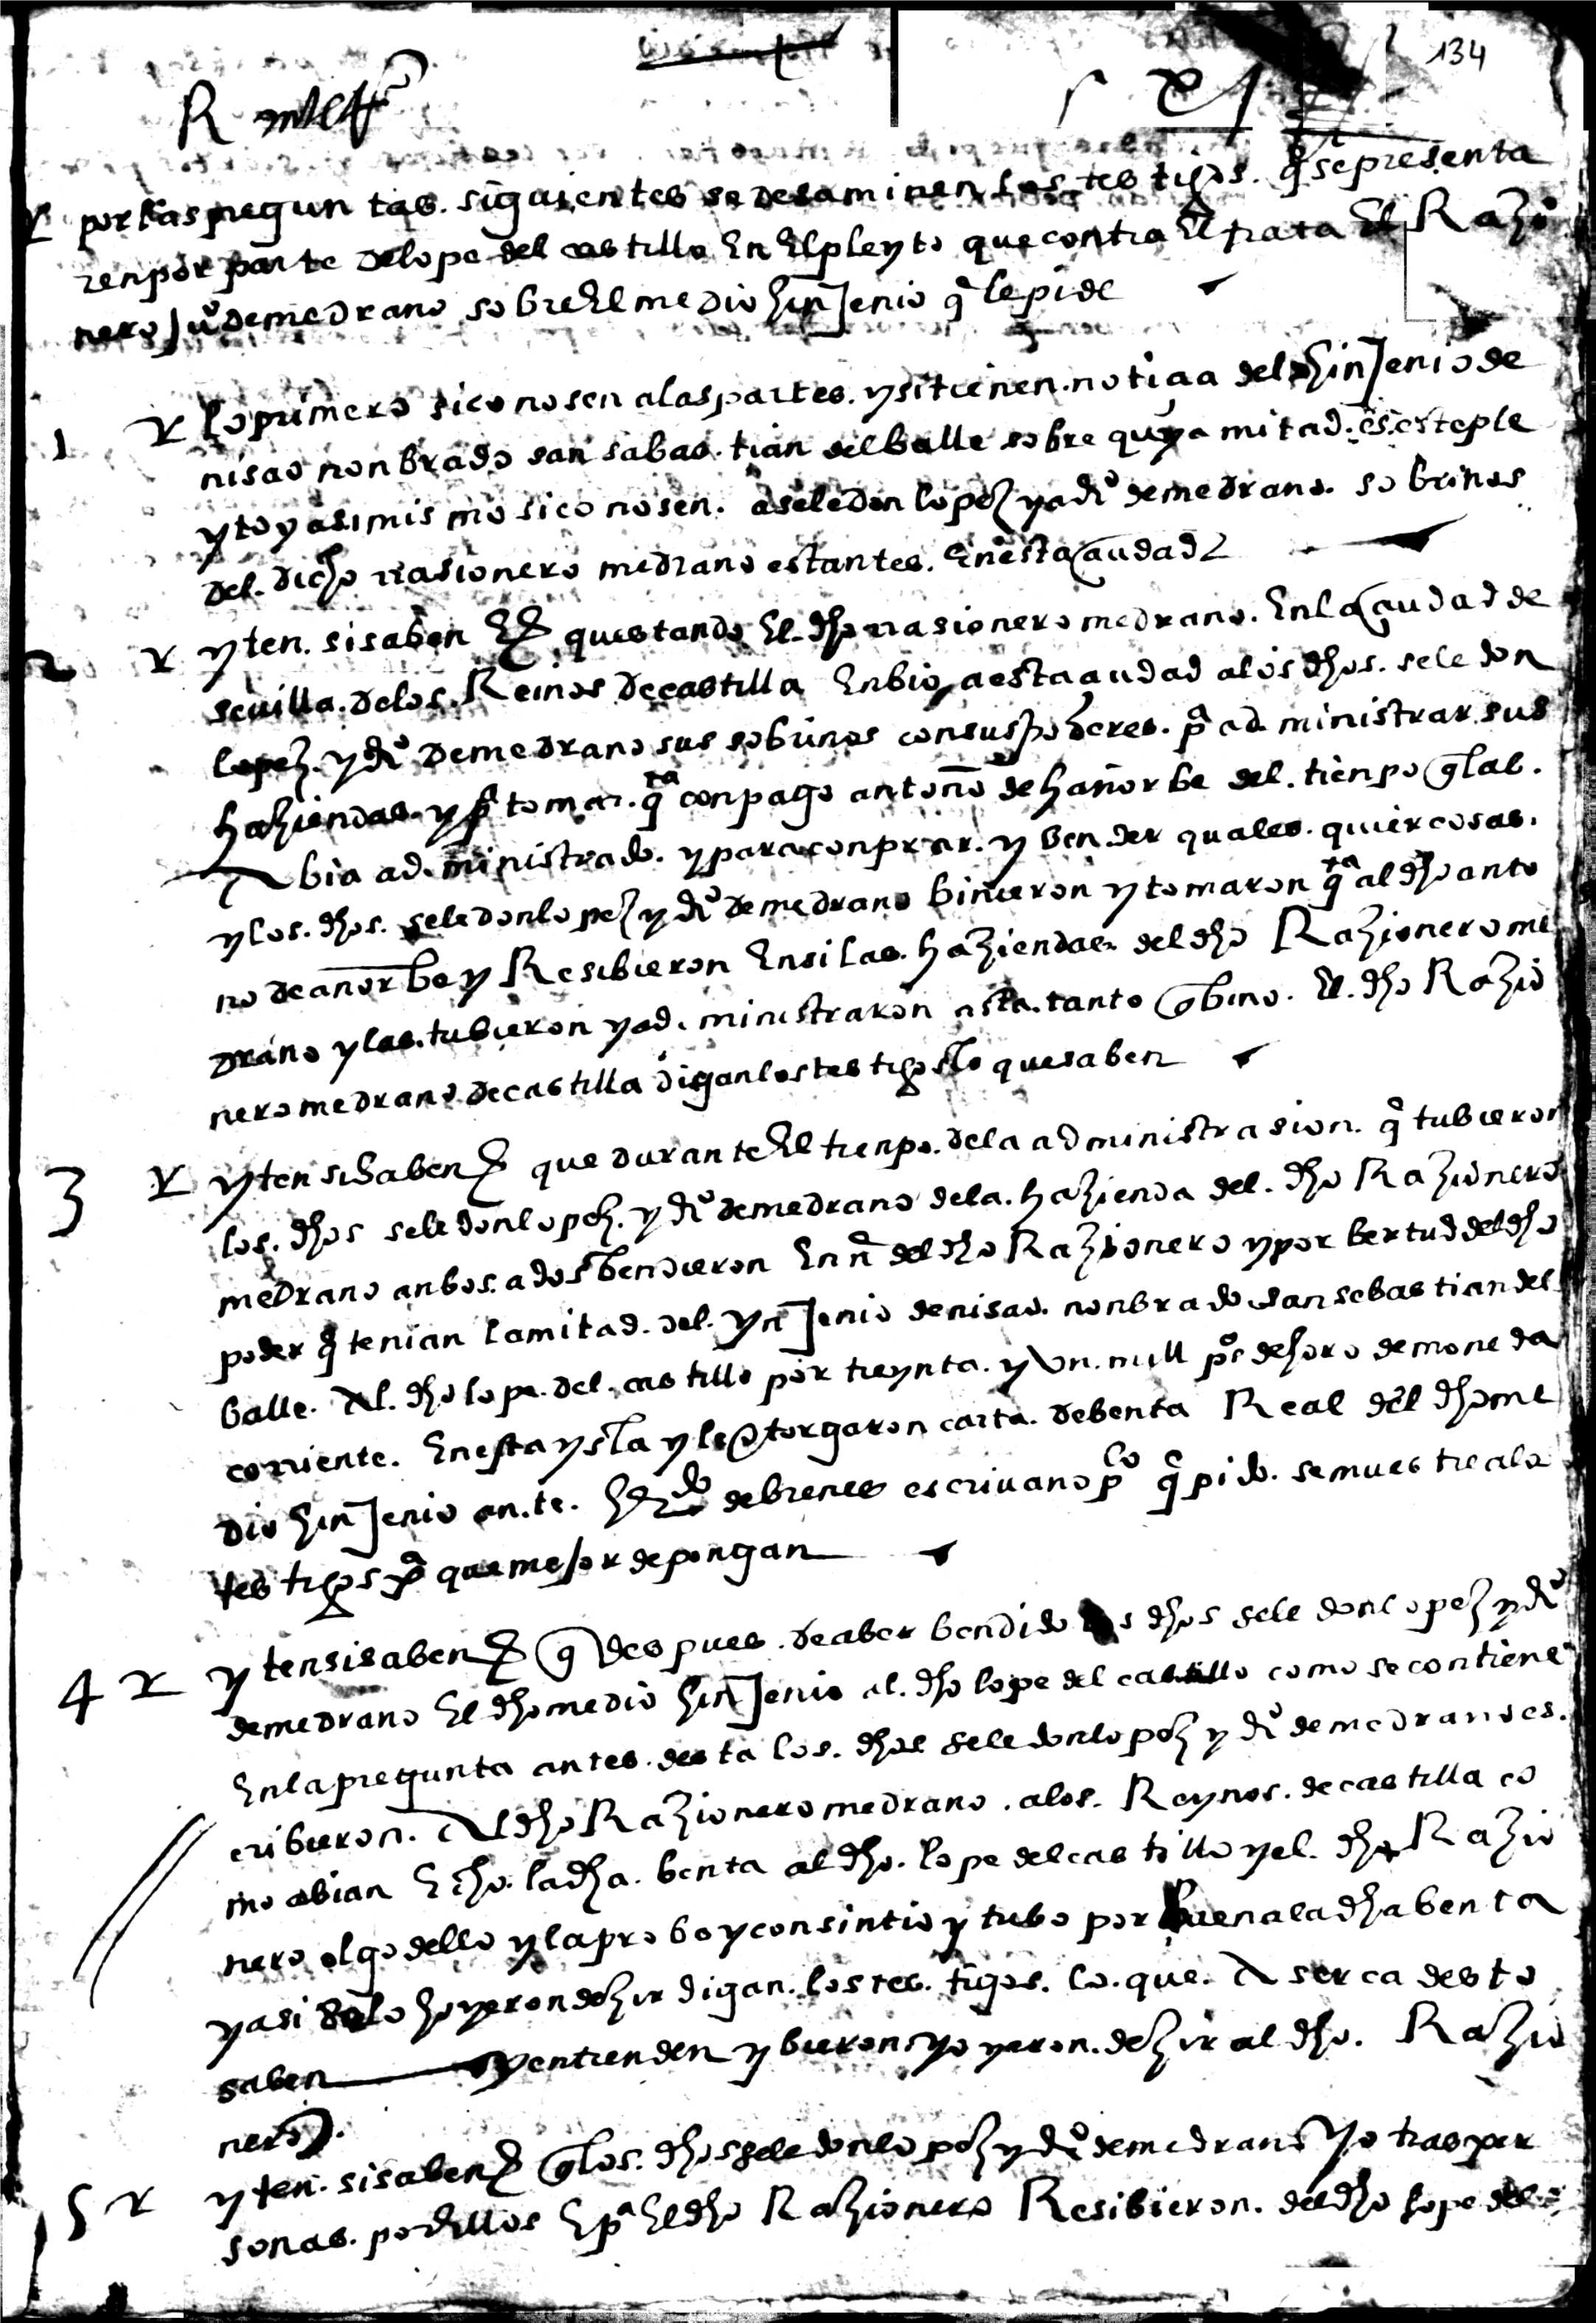 134
por las preguntas siguientes se desaminen los testigos q se presenta
ren por parte de lope del castillo En El pleyto que contra El trata El Razio
nero juº de medrano sobre El medio hinjenio q le pide
1 lo primero si conosen a las partes y si tienen notiçia del hinjenio de
nisao nonbrado san sabastian del balle sobre quya mitad es este ple
yto y asimismo si conosen a seledon lopez y a dº de medrano sobrinos
del dicho rrasionero medrano estantes En esta çiudad
2 yten si saben Eª questando El dho rrasionero medrano En la çiudad de
sevilla de los Reinos de castilla Enbio a esta çiudad a los dhos seledon
lopez y dº de medrano sus sobrinos con sus poderes pª administrar sus
haziendas y pª tomar qta con pago antonio de hañorbe del tienpo q las
abia administrado y para conprar y bender quales quier cosas
y los dhos seledon lopez y dº de medrano binieron y tomaron qta al dho anto
nio de añorbe y Resibieron En si las haziendas del dho Razionero me
drano y las tubieron y administraron asta tanto q bino El dho Razio
nero medrano de castilla digan los testigos lo que saben
3 yten si saben que durante El tienpo de la administrasion q tubieron
los dhos seledon lopez y dº de medrano de la hazienda del dho Razionero
medrano anbos a dos bendieron En nº del dho Razionero y por bertud del dho
poder q tenian la mitad del ynjenio de nisao nonbrado san sebastian del
balle Al dho lope del castillo por treynta y un mill pºs de horo de moneda
corriente En esta ysla y le otorgaron carta de benta Real del dho me
dio hinjenio ante de brenes escrivano pco q pido se muestre a los
testigos pª que mejor depongan
4 yten si saben q despues de aber bendido los dhos seledon lopez y dº
de medrano El dho medio hinjenio al dho lope del castillo como se contiene
En la pregunta antes desta los dhos seledon lopez y dº de medrano es
cribieron Al dho Razionero medrano a los Reynos de castilla co
mo abian Echo la dha benta al dho lope del castillo y el dho Razio
nero olgo dello y la probo y consintio y tubo por buena la dha benta
y asi se lo hoyeron dezir digan los testigos lo que A serca desto
saben y entienden y bieron y oyeron dezir al dho Razio
nero
5 yten si saben q los dhos seledon lopez y dº de medrano y otras per
sonas por Ellos E pª El dho Razionero Resibieron del dho lope del